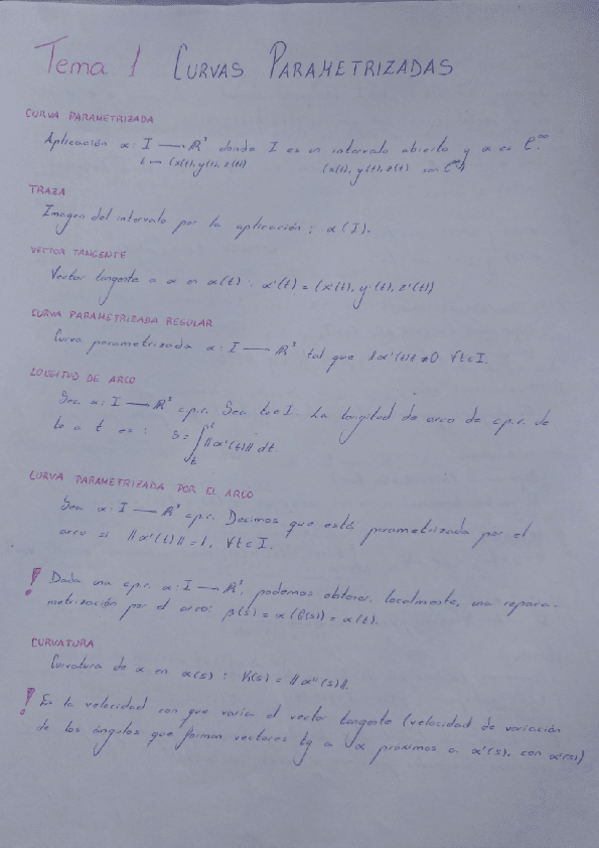 Tema 1 CURVAS PARAMETRIZADAS
CURVA PARAMETRIZADA
Aplicación α: I → ℝ³ donde I es un intervalo abierto y α es C^∞.
t → (x(t), y(t), z(t)) (x(t), y(t), z(t) son C^∞)
TRAZA
Imagen del intervalo por la aplicación: α(I).
VECTOR TANGENTE
Vector tangente a α en α(t): α'(t) = (x'(t), y'(t), z'(t))
CURVA PARAMETRIZADA REGULAR
Curva parametrizada α: I → ℝ³ tal que ‖α'(t)‖ ≠ 0 ∀t∈I.
LONGITUD DE ARCO
Sea α: I → ℝ³ c.p.r. Sea t₀∈I. La longitud de arco de c.p.r. de
t₀ a t es: s = ∫ ‖α'(t)‖ dt.
CURVA PARAMETRIZADA POR EL ARCO
Sea α: I → ℝ³ c.p.r. Decimos que está parametrizada por el
arco si ‖α'(t)‖ = 1, ∀t∈I.
! Dada una c.p.r. α: I → ℝ³, podemos obtener, localmente, una repara-
metrización por el arco: β(s) = α(t(s)) = α(t).
CURVATURA
Curvatura de α en α(s): K(s) = ‖α''(s)‖.
! Es la velocidad con que varía el vector tangente (velocidad de variación
de los ángulos que forman vectores tg a α próximos a α'(s), con α'(s))